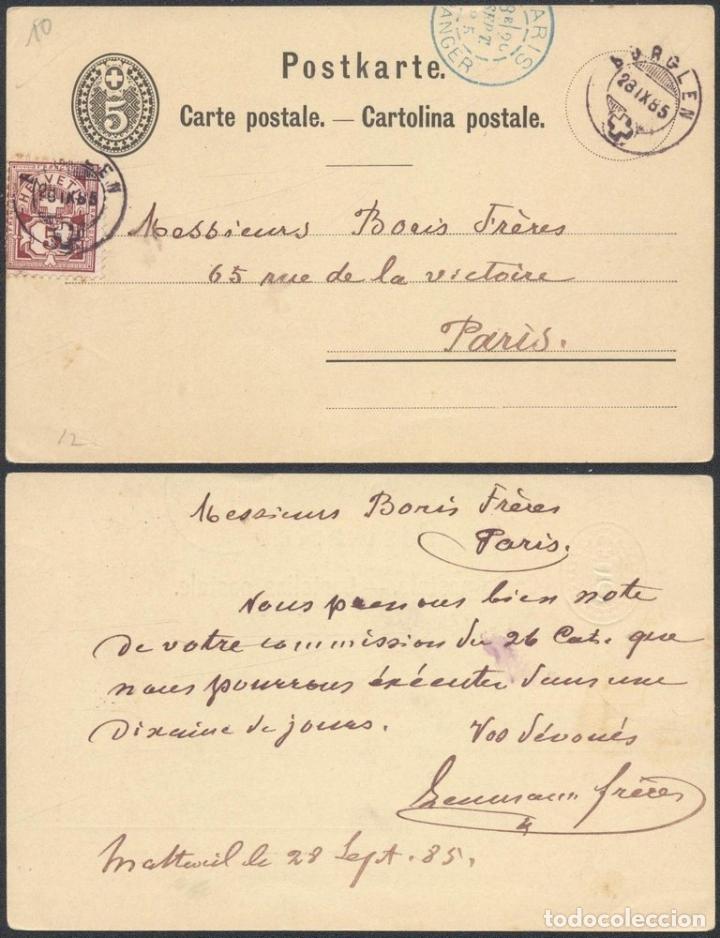 10
PARIS
ETRANGER
Postkarte.
Carte postale. — Cartolina postale.
5
BÜRGLEN
28 IX 85
HELVETIA
28 IX 85
5
Messieurs Boris Frères
65 rue de la victoire
Paris.
12
Messieurs Boris Frères
Paris.
Nous prenons bien note
de votre commission du 26 Cat. que
nous pourrons éxécuter dans une
Dixaine de jours. Vos dévoués
frères
le 28 Sept. 85.
todocoleccion